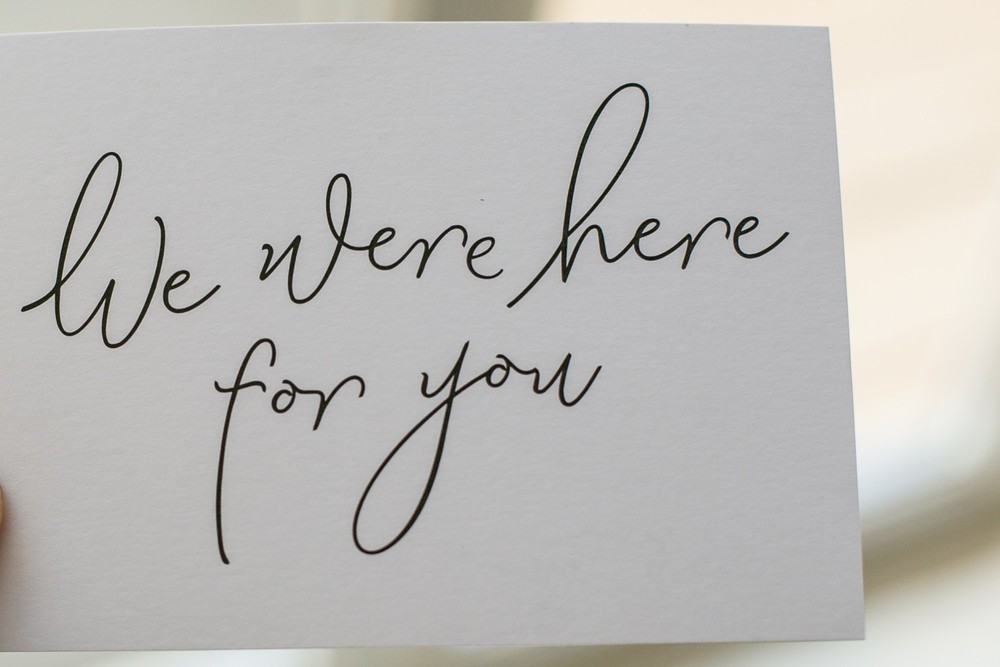 We were here
for you